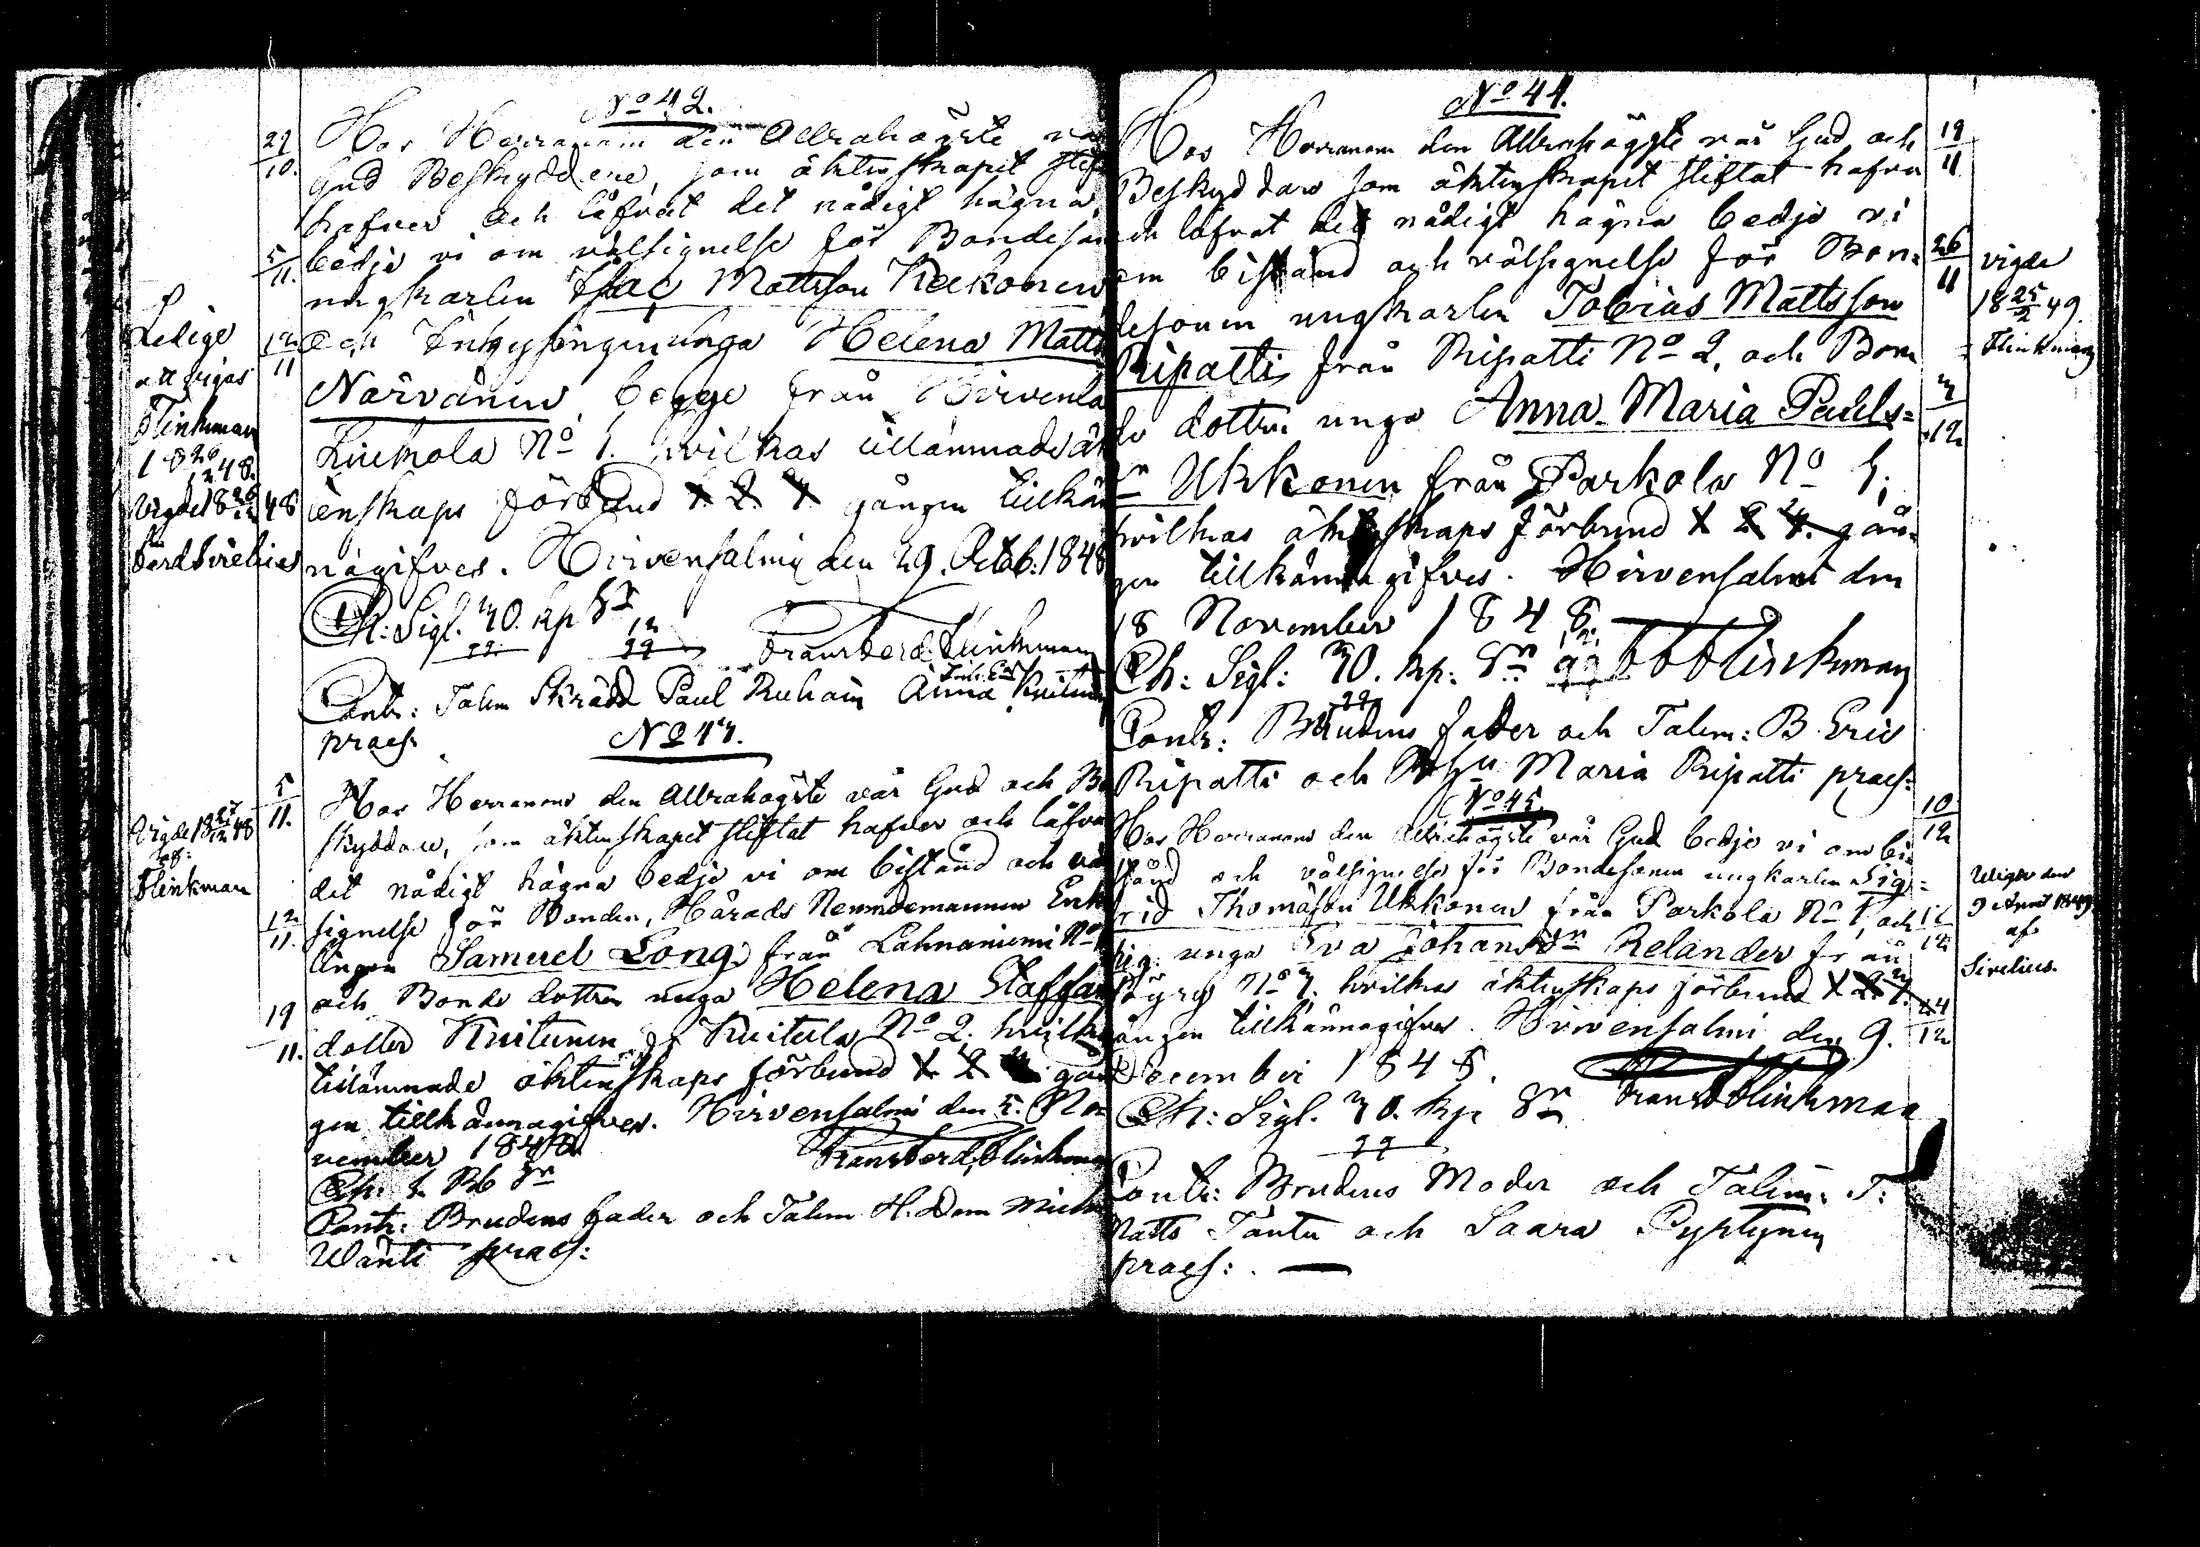 No 42.
29/10. Hos Herranom den Allrahögste vå
Gud Beskyddare, som äktenskapet stif
hafver och låfvat det nådigt hägna,
5/11. bedje vi om välsignelse för Bondeson
ungkarlen Isac Mattsson Keckonen
12/11 och Inhysingen unga Helena Matts
Narvänen, begge från Hirvenla
Liukola No 1. hvilkas tillämnade äk
tenskaps förbund 1 2 3 gången tillkän
nagifves. Hirvensalmi den 29. Octob: 1848
Ch: Sigl. 30. kp Sr
Frans Ferd: Flinkman
Contr: Talm Skrädd Paul Ruhain Anna Kuitun
praes
Ledige
att vigas
Flinkman
18 26/12 48.
Vigde 18 26/12 48
Ferd Sirelius
No 43.
5/11. Hos Herranom den Allrahögste vår Gud och Be
skyddare, som äktenskapet stiftat hafver och låfva
det nådigt hägna bedje vi om bistånd och väl
12/11. signelse för Bonden, Härads Nemndemannen Enk
lingen Samuel Long från Lahnaniemi No
och Bonde dottren unga Helena Staffans
19/11. dotter Kuitunen fr Kuitula No 2. hvilkas
tillämnade äktenskaps förbund 1 2 3 gån
gen tillkännagifves. Hirvensalmi den 5. No
vember 1848
Frans Ferd, Flinkman
Ch: S. Rb Sr
Contr: Brudens fader och Talm H. Dom Mich
Wänti praes:
Vigde 18 27/12 48
af:
Flinkman
No 44.
Hos Herranom den Allrahögste vår Gud och 19/11
Beskyddare som äktenskapet stiftat hafva
och låfvat det nådigt hägna bedje vi
om bistånd och välsignelse för Bon= 26/11
desonen ungkarlen Tobias Mattsson
Ripatti från Ripatti No 2, och Bon
de dottren unga Anna Maria Pauls= 3/12
dr Ukkonen från Parkola No 1;
hvilkas äktenskaps förbund 1 2 3. gån=
gen tillkännagifves. Hirvensalmi den
18 November 1848.
Ch: Sigl: 30. kp: Sr F F Flinkman
Contr: Brudens fader och Talm: B. Eric
Ripatti och Maria Ripatti praes:
vigde
18 25/2 49
Flinkman
No 45.
Hos Herranom den Allrahögste vår Gud bedje vi om bi= 10/12
stånd och välsignelse för Bondesonen ungkarlen Sig=
frid Thomasson Ukkonen från Parkola No 1, och 17/12
pig. unga Eva Johansdr Relander från
Pöyry No 3. hvilkas äktenskaps förbund 1 2 3.
gången tillkännagifves. Hirvensalmi den 9. 24/12
December 1848.
Ch: Sigl. 30. kp Sr Frans F Flinkman
Contr: Brudens Moder och Talm. T:
Matts Tantu och Saara Pyplynen
praes:. —
Wigde den
9 April 1849
af
Sirelius.